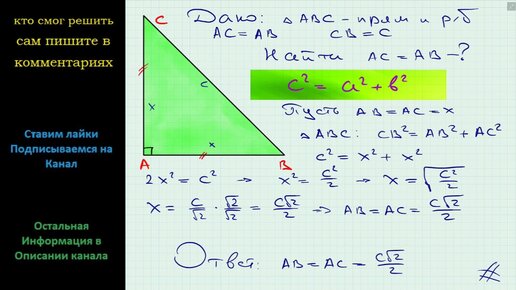 кто смог решить
сам пишите в
комментариях
Ставим лайки
Подписываемся на
Канал
Остальная
Информация в
Описании канала
C
c
x
x
A
B
Дано: △ABC - прям и р/б
AC = AB CB = C
Найти AC = AB - ?
c² = a² + b²
Пусть AB = AC = x
△ABC: CB² = AB² + AC²
c² = x² + x²
2x² = c² → x² = c²/2 → x = √(c²/2)
x = c/√2 · √2/√2 = c√2/2 ⇒ AB = AC = c√2/2
Ответ: AB = AC = c√2/2